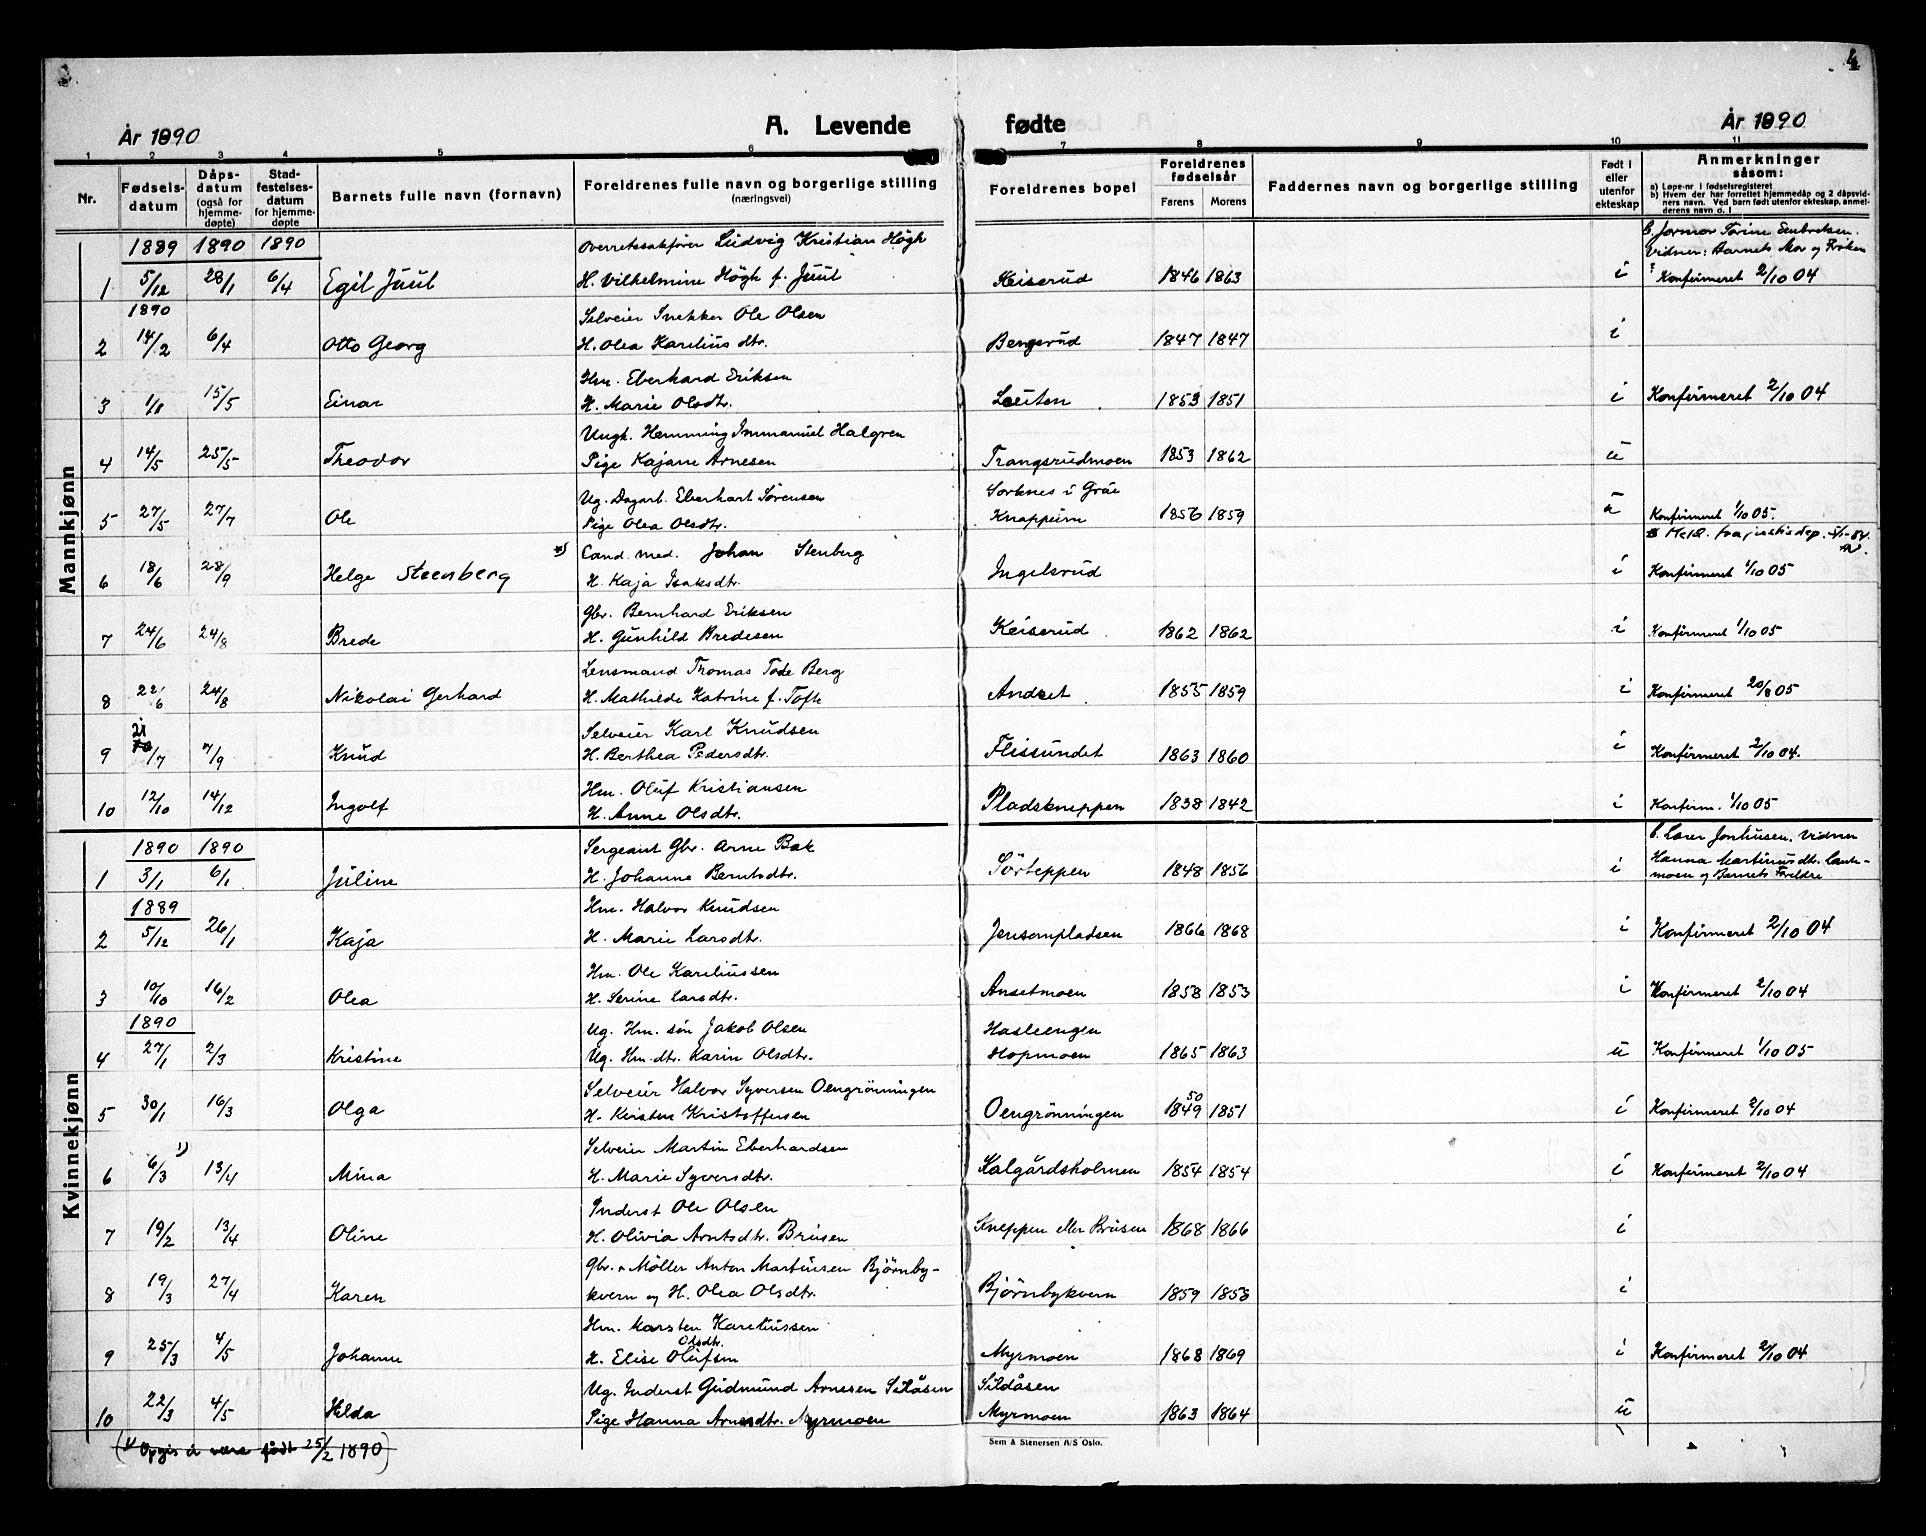 4
År 1890 A. Levende fødte År 1890
1 2 3 4 5 6 7 8 9 10 11
Nr. Fødselsdatum Dåpsdatum (også for hjemmedøpte) Stadfestelsesdatum for hjemmedøpte Barnets fulle navn (fornavn) Foreldrenes fulle navn og borgerlige stilling (næringsvei) Foreldrenes bopel Foreldrenes fødselsår Farens Morens Faddernes navn og borgerlig stilling Født i eller utenfor ekteskap Anmerkninger såsom:
a) Løpe-nr i fødselsregisteret
b) Hvem der har forrettet hjemmedåp og 2 dåpsvidners navn. Ved barn født utenfor ekteskap, anmelderens navn o. l
Mannkjønn
1889 1890 1890 Overretssakfører Ludvig Kristian Högh
Vidner: Barnets Mor og
1 5/12 28/1 6/4 Egil Juul H. Vilhelmine Högh f. Juul Keiserud 1846 1863 i Konfirmeret 2/10 04
1890 Selveier Snekker Ole Olsen
2 14/2 6/4 Otto Georg H. Olea Karelius dtr. Bergsrud 1847 1847 i
Hm. Eberhard Eriksen
3 1/8 15/5 Einar H. Marie Olsdtr. Leuten 1853 1851 i Konfirmeret 2/10 04
Ungk. Hemming Immanuel Halgren
4 14/5 25/5 Theodor Pige Kajane Arnesen Trangsrudmoen 1853 1862 u
Ug. Dagarb. Eberhart Sörensen Sorknes i Grue
5 27/5 27/7 Ole Pige Olea Olsdtr. 1856 1859 u Konfirmeret 1/10 05.
Cand. med. Johan Stenberg
6 18/6 28/9 Helge Steenberg H. Kaja Isaksdtr. Ingelsrud i Konfirmeret 1/10 05
Gbr. Bernhard Eriksen
7 24/6 24/8 Brede H. Gunhild Bredesen Keiserud 1862 1862 i Konfirmeret 1/10 05
Lensmand Thomas Tode Berg
8 22/6 24/8 Nikolai Gerhard H. Mathilde Katrine f. Toft Andset 1855 1859 i Konfirmeret 20/8 05
21 Selveier Karl Knudsen
9 /7 7/9 Knud H. Berthea Pedersdtr. Flissundet 1863 1860 i Konfirmeret 2/10 04.
Hm. Oluf Kristiansen
10 12/10 14/12 Ingolf H. Anne Olsdtr. Pladskneppen 1838 1842 i Konfirm. 1/10 05
Kvinnekjønn
1890 1890 Sergeant Gbr. Arne Bak
1 3/1 6/1 Juline H. Johanne Berntsdtr. Sörteppen 1848 1856 i Hanna Martinusdtr.
moen og Barnets Foreldre
1889 Hm. Halvor Knudsen
2 5/12 26/1 Kaja H. Marie Larsdtr. Jensempladsen 1866 1868 i Konfirmeret 2/10 04
Hm. Ole Kareliussen
3 10/10 16/2 Olea H. Serine Larsdtr. Ansetmoen 1858 1853 i Konfirmeret 2/10 04
1890 Ug. Hm. sön Jakob Olsen Hasleengen
4 27/1 2/3 Kristine Ug. Hm. dtr. Karin Olsdtr. Hopmoen 1865 1863 u Konfirmeret 1/10 05
Selveier Halvor Syversen Oengrönningen 50
5 30/1 16/3 Olga H. Kristoffersen Oengrönningen 1849 1851 i Konfirmeret 2/10 04
Selveier Martin Eberhardsen
6 6/3 1) 13/4 Mina H. Marie Syversdtr. Kalgårdsholmen 1854 1854 i Konfirmeret 2/10 04
Inderst Ole Olsen
7 19/2 13/4 Oline H. Olivia Arntsdtr. Brusen Kneppen eller Brusen 1868 1866 i
Gbr. Möller Anton Martinsen Björnby-
8 19/3 27/4 Karen kvern og H. Olea Olsdtr. Björnbykvern 1859 1858 i
Hm. Karsten Kareliussen
Olsdtr.
9 25/3 4/5 Johanne H. Elise Olufsen Myrmoen 1868 1869 i Konfirmeret 2/10 04
Ug. Inderst Gudmund Arnesen Sildåsen Sildåsen
10 22/3 4/5 Hilda Pige Hanna Arnesdtr. Myrmoen Myrmoen 1863 1864 u
(1) Opgis å være født 25/2 1890)
Sem & Stenersen A/S Oslo.